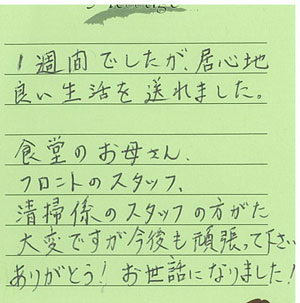 1週間でしたが、居心地
良い生活を送れました。
食堂のお母さん、
フロントのスタッフ、
清掃係のスタッフの方がた
大変ですが今後も頑張って下さい
ありがとう！お世話になりました！